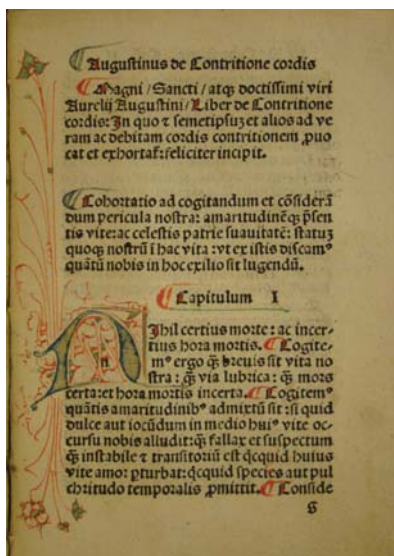 Augustinus de Contritione cordis
Magni / Sancti / atqꝫ doctissimi viri
Aurelij Augustini / Liber de Contritione
cordis: In quo ⁊ semetipsuꝫ et alios ad ve
ram ac debitam cordis contritionem ꝓuo
cat et exhortat̃: feliciter incipit.
Cohortatio ad cogitandum et cõsiderã
dum pericula nostra: amaritudinẽqꝫ p̃sen
tis vite: ac celestis patrie suauitatẽ: statuꝫ
quoqꝫ nostrũ ĩ hac vita: vt ex istis discamꝰ
quãtũ nobis in hoc exilio sit lugendũ.
Capitulum I
NIhil certius morte: ac incer-
tius hora mortis. Cogite-
mꝰ ergo q̃ꝫ breuis sit vita no
stra: q̃ꝫ via lubrica: q̃ꝫ mors
certa: et hora mortis incerta. Cogitemꝰ
quãtis amaritudinibꝰ admixtũ sit: si quid
dulce aut iocũdum in medio huiꝰ vite oc-
cursu nobis alludit: q̃ꝫ fallax et suspectum
q̃ꝫ instabile ⁊ transitoriũ est q̇cquid huius
vite amor ꝑturbat: q̇cquid species aut pul
chritudo temporalis ꝓmittit. Conside